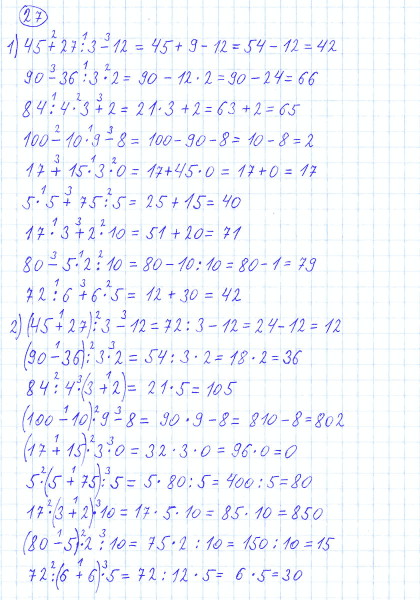 27
1) 45 + 27 : 3 - 12 = 45 + 9 - 12 = 54 - 12 = 42
90 - 36 : 3 · 2 = 90 - 12 · 2 = 90 - 24 = 66
84 : 4 · 3 + 2 = 21 · 3 + 2 = 63 + 2 = 65
100 - 10 · 9 - 8 = 100 - 90 - 8 = 10 - 8 = 2
17 + 15 · 3 · 0 = 17 + 45 · 0 = 17 + 0 = 17
5 · 5 + 75 : 5 = 25 + 15 = 40
17 · 3 + 2 · 10 = 51 + 20 = 71
80 - 5 · 2 : 10 = 80 - 10 : 10 = 80 - 1 = 79
72 : 6 + 6 · 5 = 12 + 30 = 42
2) (45 + 27) : 3 - 12 = 72 : 3 - 12 = 24 - 12 = 12
(90 - 36) : 3 · 2 = 54 : 3 · 2 = 18 · 2 = 36
84 : 4 · (3 + 2) = 21 · 5 = 105
(100 - 10) · 9 - 8 = 90 · 9 - 8 = 810 - 8 = 802
(17 + 15) · 3 · 0 = 32 · 3 · 0 = 96 · 0 = 0
5 · (5 + 75) : 5 = 5 · 80 : 5 = 400 : 5 = 80
17 · (3 + 2) · 10 = 17 · 5 · 10 = 85 · 10 = 850
(80 - 5) · 2 : 10 = 75 · 2 : 10 = 150 : 10 = 15
72 : (6 + 6) · 5 = 72 : 12 · 5 = 6 · 5 = 30